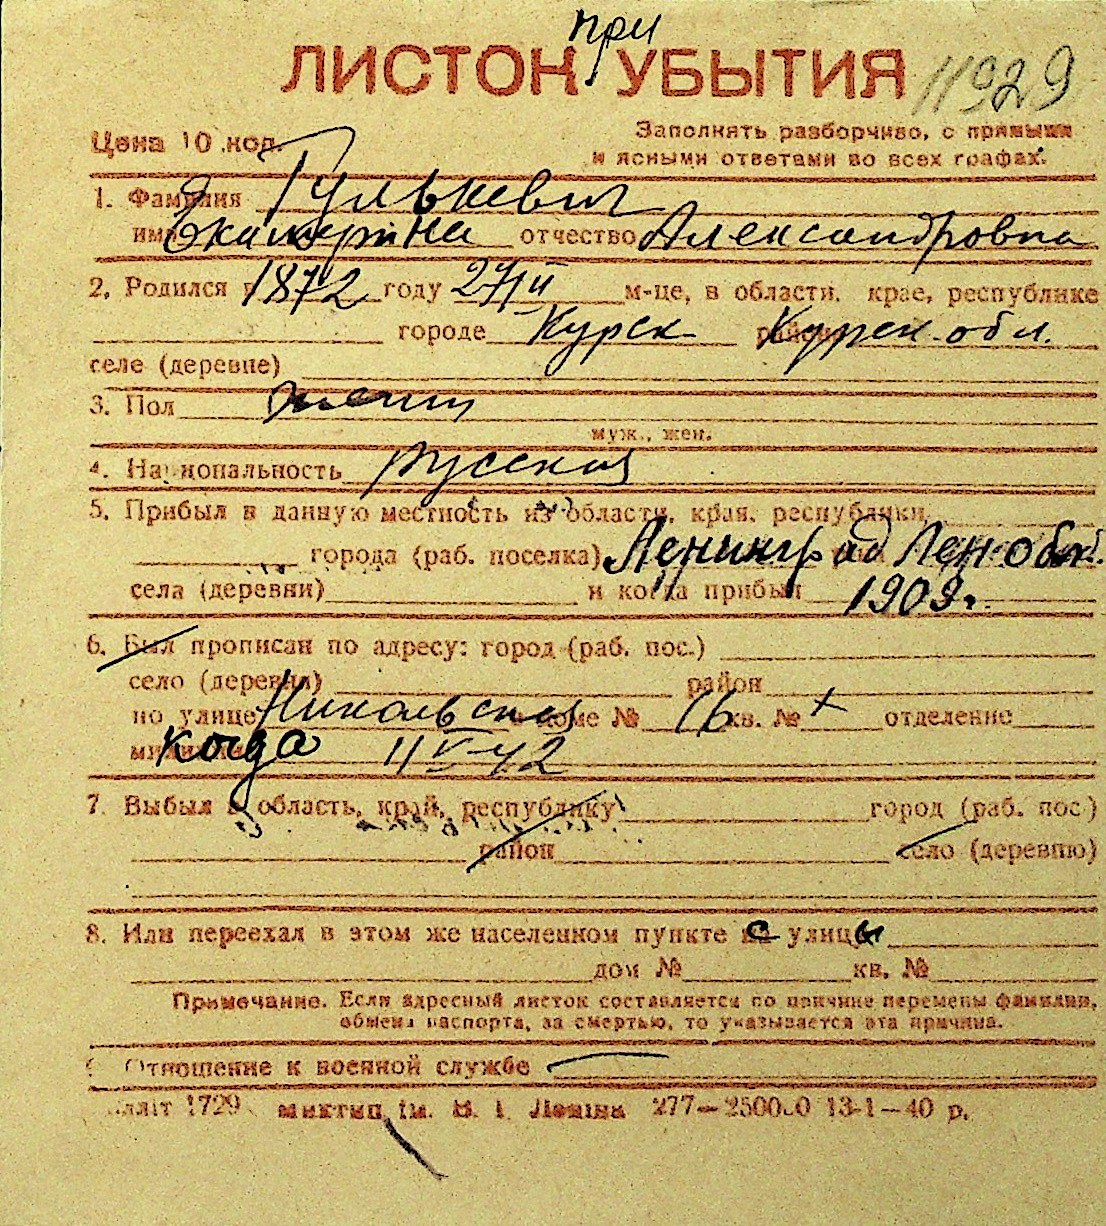 при
ЛИСТОК УБЫТИЯ 11929
Цена 10 коп.
Заполнять разборчиво, с прямыми
и ясными ответами во всех графах.
1. Фамилия Гулькевич
имя Екатерина отчество Александровна
2. Родился в 1872 году 24/II м-це, в области, крае, республике
городе Курск Курск. обл.
селе (деревне)
3. Пол женщ
муж., жен.
4. Национальность русская
5. Прибыл в данную местность из области, края, республики
города (раб. поселка) Ленинград Лен обл.
села (деревни) и когда прибыл 1909 г.
6. Был прописан по адресу: город (раб. пос.)
село (деревня) район
по улице Никольская в доме № 16 кв. № + отделение
милиции когда 11 V-42
7. Выбыл в область, край, республику город (раб. пос.)
район село (деревню)
8. Или переехал в этом же населенном пункте с улицы
дом № кв. №
Примечание. Если адресный листок составляется по причине перемены фамилии,
обмена паспорта, за смертью, то указывается эта причина.
Отношение к военной службе —
1729 ім. В. І. Леніна 277—250000 13-1—40 р.